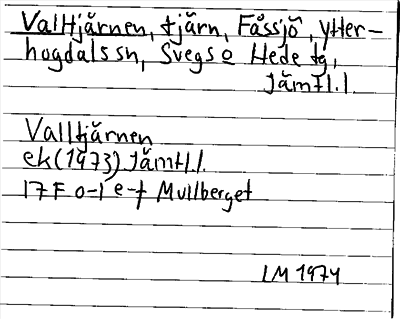 Valltjärnen, tjärn, Fåssjö, Ytter-
hogdals sn, Svegs o Hede tg,
Jämtl.l.
Valltjärnen
ek (1973) Jämtl.l.
17F 0-1 e-f Mullberget
LM 1974